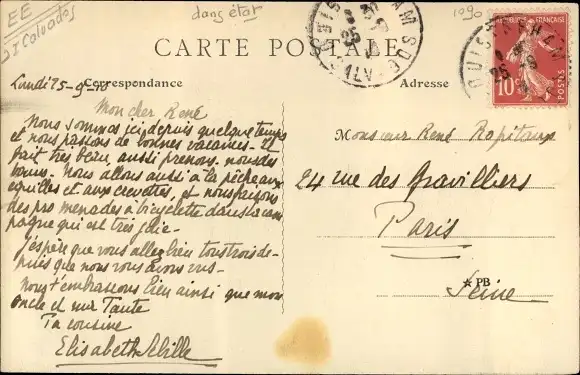 EE
dans état
1090
I Calvados
CARTE POSTALE
Correspondance
Adresse
10
POSTES
Lundi 25-9-
Mon cher René
Nous sommes ici depuis quelque temps
et nous passons de bonnes vacances. Il
fait très beau, aussi prenons-nous des
bains. Nous allons aussi à la pêche aux
équilles et aux crevettes, et nous faisons
des promenades à bicyclette dans la cam
pagne qui est très jolie.
J'espère que vous allez bien tous trois de-
puis que nous vous avons vus.
Nous t'embrassons bien ainsi que mon
oncle et ma Tante
Ta cousine
Elisabeth
Monsieur René Rapitaux
24 rue des Gravilliers
Paris
PB
Seine